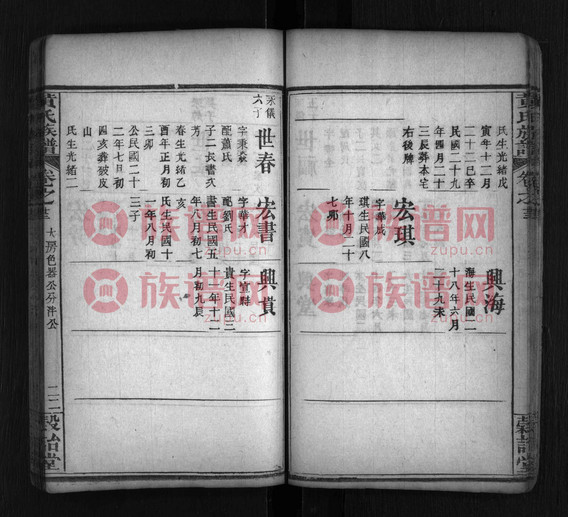 氏生光緒戊
寅年十二月
二十二巳卒
民國二十九
年四月二十
三辰葬本宅
右後陳
宏琪
字華成
琪生民國八
年十月二十
七卯
興海
海生民國二
十八年六月
二十九未
永儀
六子
世春
字秉森
配蕭氏
子二長書次
芳
春生光緒乙亥
酉年正月初
三卯
公民國二十
二年七月初
四亥葬彼皮
山
氏生光緒二
宏書
字華才
配劉氏
書生民國五
年八月初七
氏生民國十
一年八月初
三子
興貴
字宣縣
貴生民國三
十年十二
月初九辰
黃氏族譜
卷之
大房色器公分泮公
二二
穀詒堂
族谱网
zupu.cn